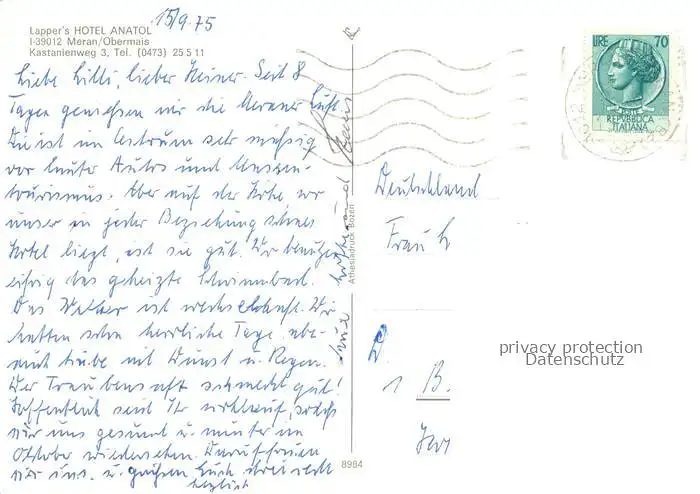 15/9.75
Lapper's HOTEL ANATOL
I-39012 Meran/Obermais
Kastanienweg 3, Tel. (0473) 25 5 11
Liebe Lilli, lieber Heiner. Seit 8
Tagen genießen wir die Meraner Luft
Die ist im Zentrum sehr
vor lauter Autos und Massen-
tourismus. Aber auf der Höhe, wo
unser in jeder Beziehung schönes
Hotel liegt, ist sie gut. Wir benutzen
eifrig das geheizte Schwimmbad.
Das Wetter ist wechselhaft. Wir
hatten schon herrliche Tage, aber
auch trübe mit Dunst u. Regen.
Der Traubensaft schmeckt gut!
Hoffentlich seid Ihr wohlauf, sodaß
wir uns gesund u. munter im
Oktober wiedersehen. Darauf freuen
wir uns. u. grüßen Euch
herzlichst
Hans
Athesiadruck Bozen
8984
LIRE 70
POSTE
REPUBBLICA
ITALIANA
Deutschland
Frau L
D.
1 B.
privacy protection
Datenschutz